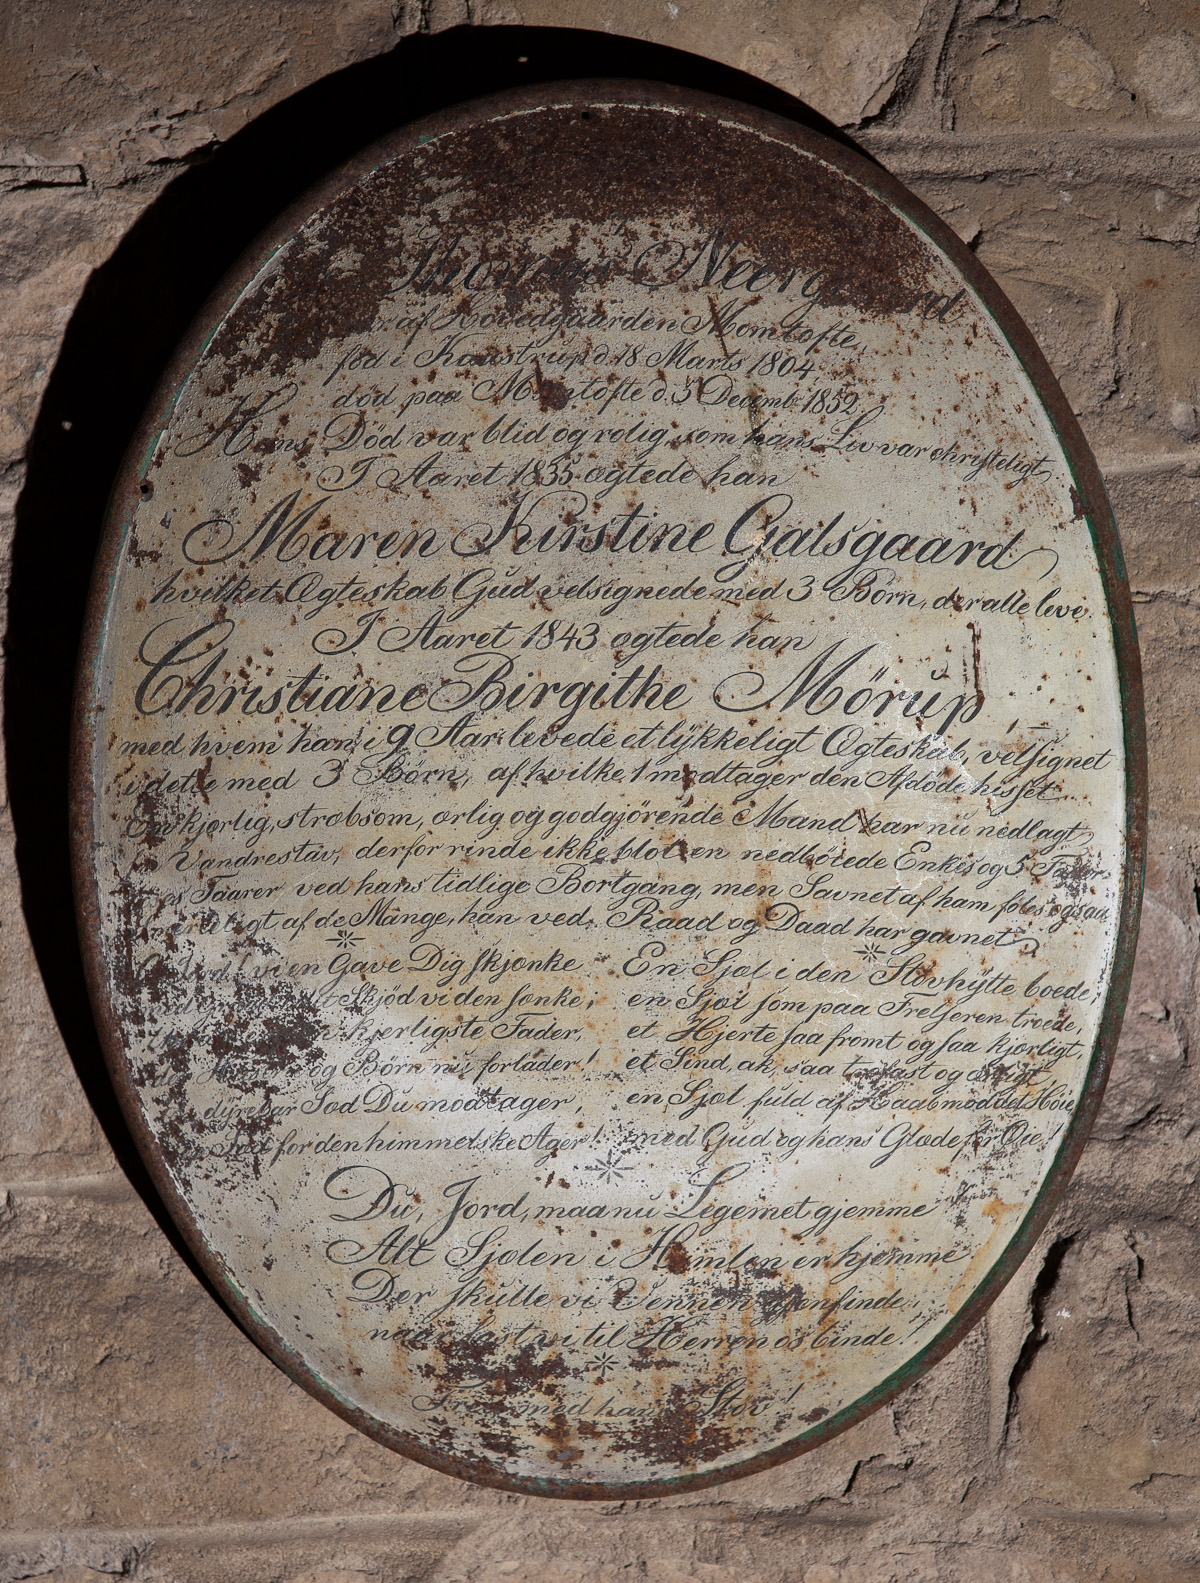 Thomas Neergaard
af Hovedgaarden Momtofte,
fød i Kaastrup d. 18 Marts 1804
død paa Momtofte d. 5 Decemb. 1852
Hans Död var blid og rolig, som hans Liv var christeligt,
I Aaret 1835 ægtede han
Maren Kirstine Galsgaard
hvilket Ægteskab Gud velsignede med 3 Börn, der alle leve.
I Aaret 1843 ægtede han
Christiane Birgithe Mörup,
med hvem han i 9 Aar levede et lÿkkeligt Ægteskab, velsignet
i dette med 3 Börn, af hvilke 1 modtager den Afdøde hisset.
En kjærlig, stræbsom, ærlig og godgjörende Mand har nu nedlagt
Vandrestav, derfor rinde ikke blot en nedböiede Enkes og 5
Taarer ved hans tidlige Bortgang, men Savnet af ham føles ogsaa
af de Mange, han ved Raad og Daad har gavnet.
vi en Gave Dig skjænke
Skjöd vi den sænke;
kjærligste Fader,
og Börn nu forlader!
dÿrebar Sæd Du modtager,
Sæd for den himmelske Ager!
En Sjæl i den Stövhÿtte boede,
en Sjæl som paa Frelseren troede,
et Hjerte saa fromt og saa kjærligt,
et Sind, ak, saa trofast og ærligt,
en Sjæl fuld af Haab mod det Høie,
med Gud og hans Glæde for Øie!
Du, Jord, maa nu Legemet gjemme
Alt Sjælen i Himlen er hjemme
Der skulle vi Vennen gjenfinde,
naar fast vi til Herren os binde!
Fred med hans Støv!